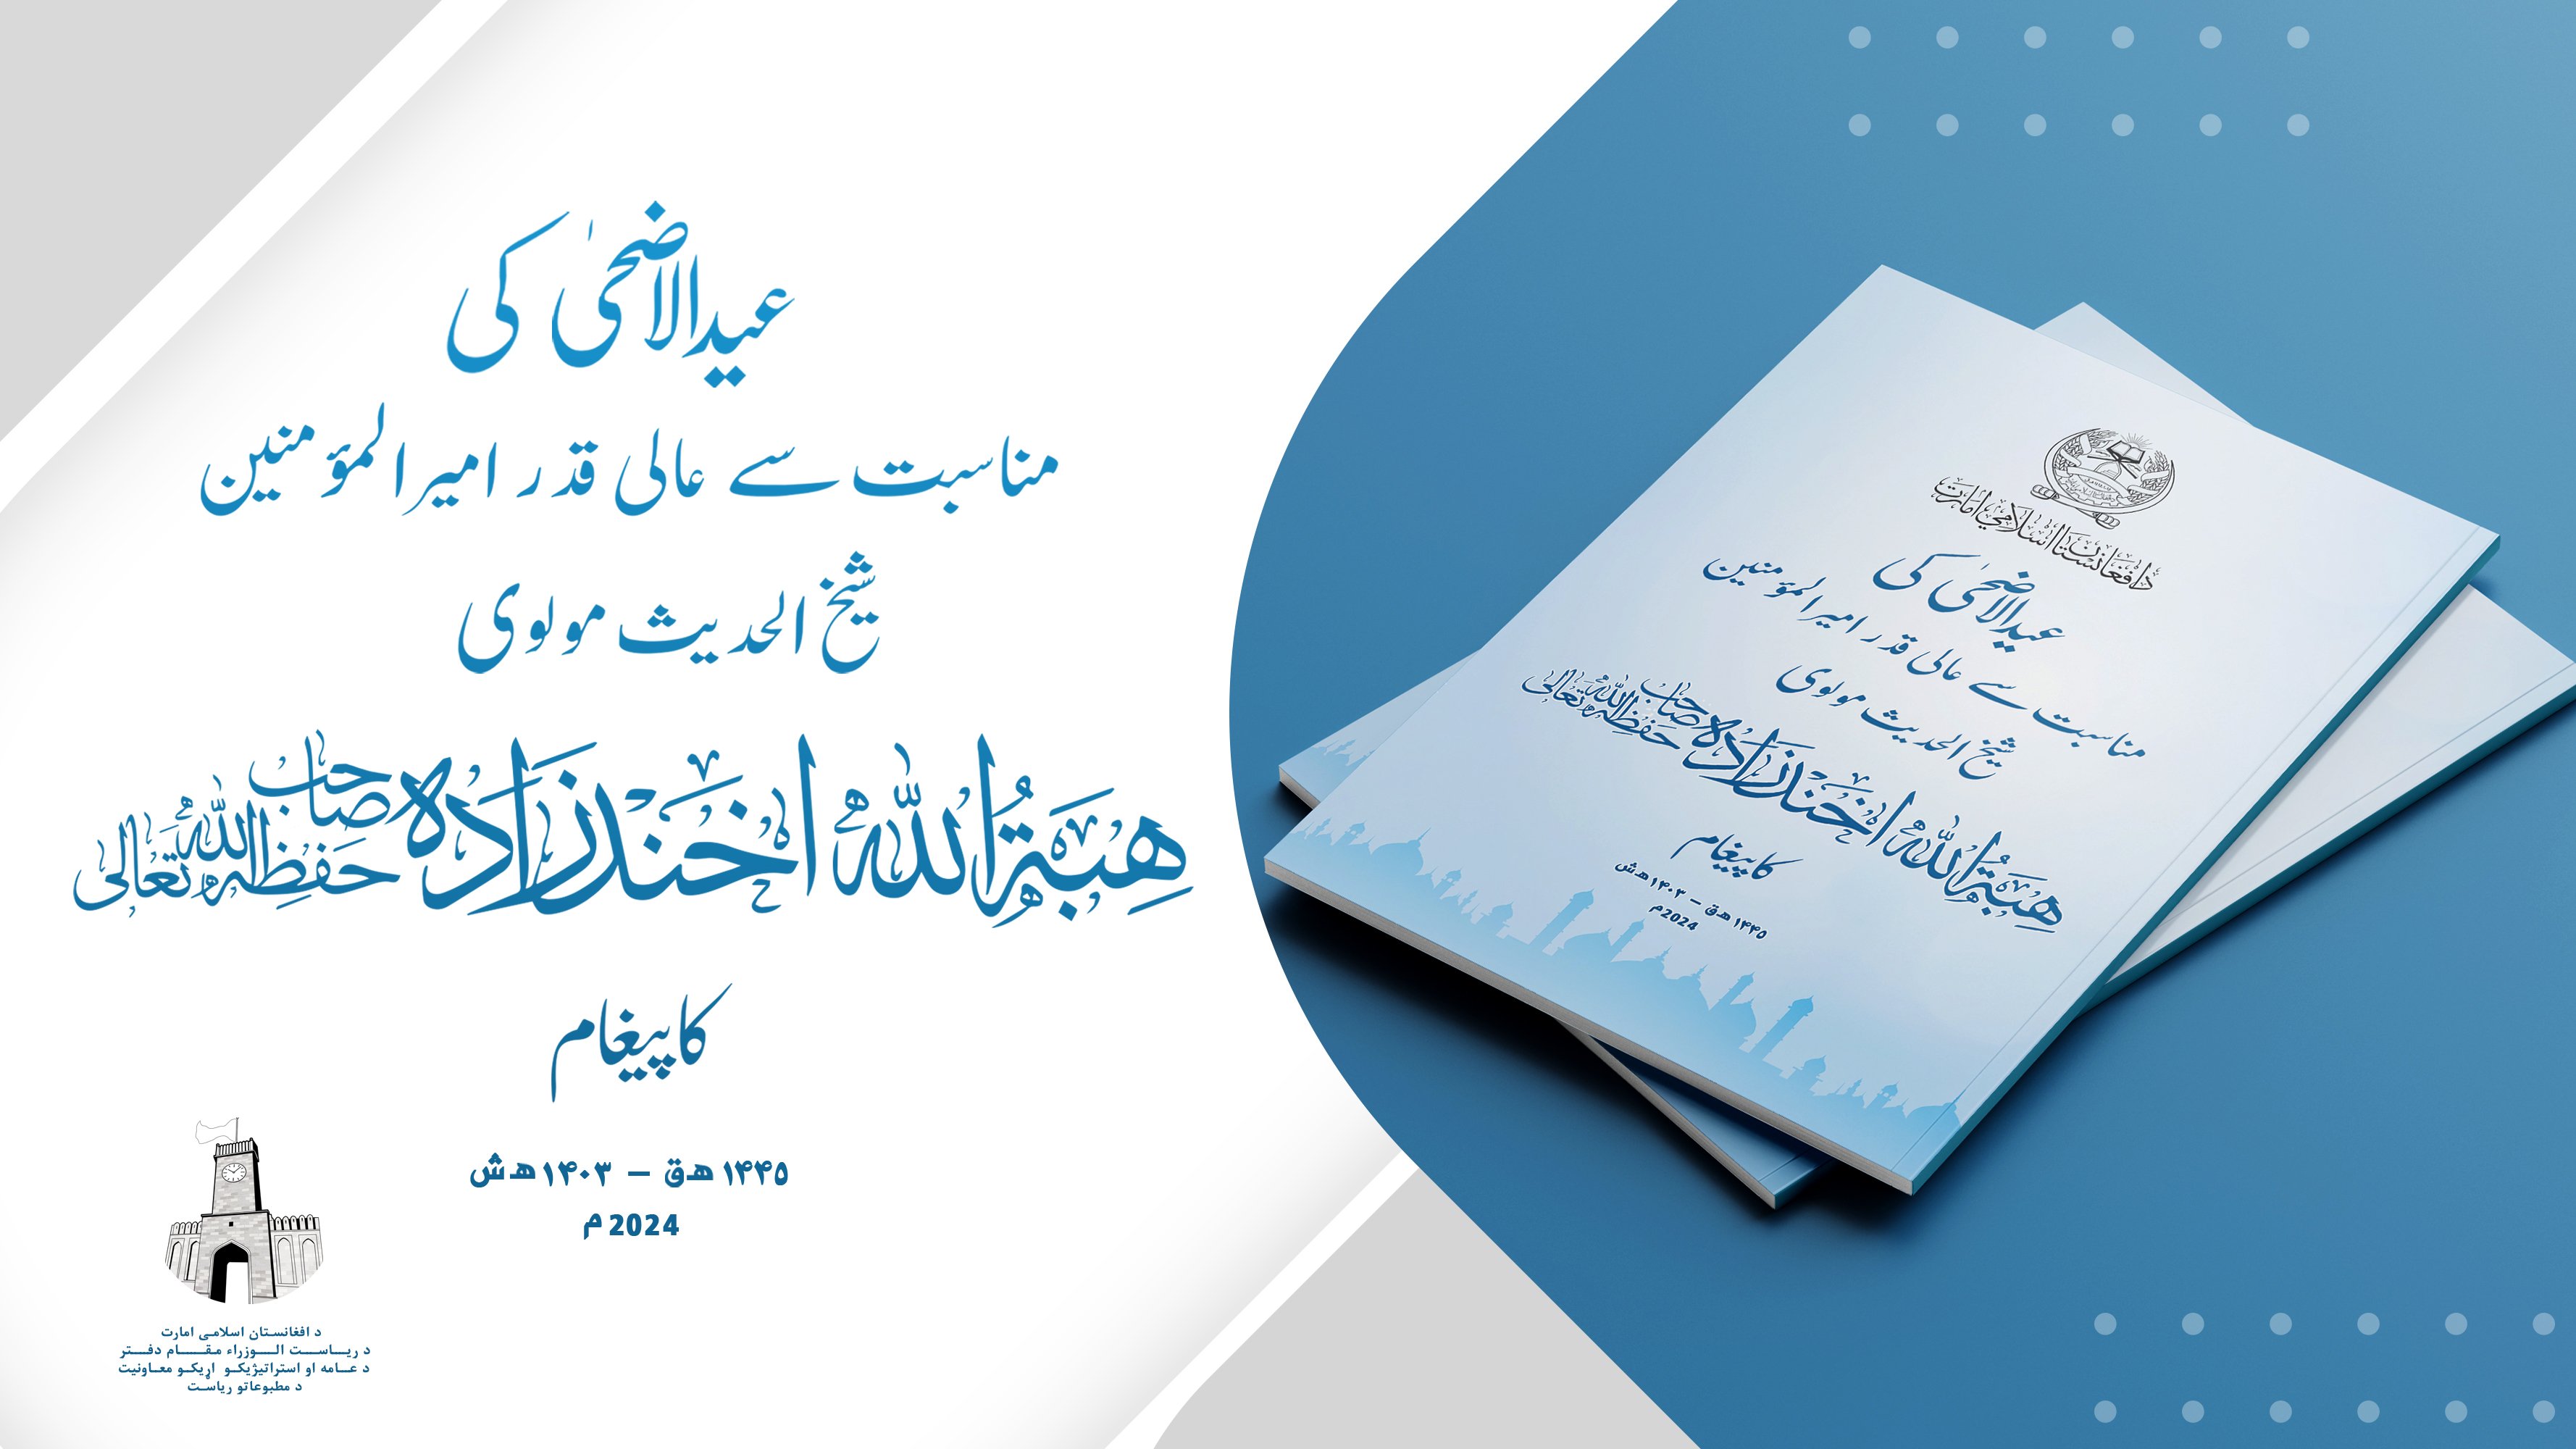 عیدالاضحیٰ کی
مناسبت سے عالی قدر امیر المؤمنین
شیخ الحدیث مولوی
هِبَةُ اللّٰه اخندزاده صاحب حفظه اللّٰه تعالی
کا پیغام
۱۴۴۵ هـ ق – ۱۴۰۳ هـ ش
2024 م
د افغانستان اسلامي امارت
د ریاست الوزراء مقام دفتر
د عامه او استراتیژیکو اړیکو معاونیت
د مطبوعاتو ریاست
د افغانستان اسلامي امارت
عیدالاضحیٰ کی
مناسبت سے عالی قدر امیر المؤمنین
شیخ الحدیث مولوی
هِبَةُ اللّٰه اخندزاده صاحب حفظه اللّٰه تعالی
کا پیغام
۱۴۴۵ هـ ق – ۱۴۰۳ هـ ش
2024 م